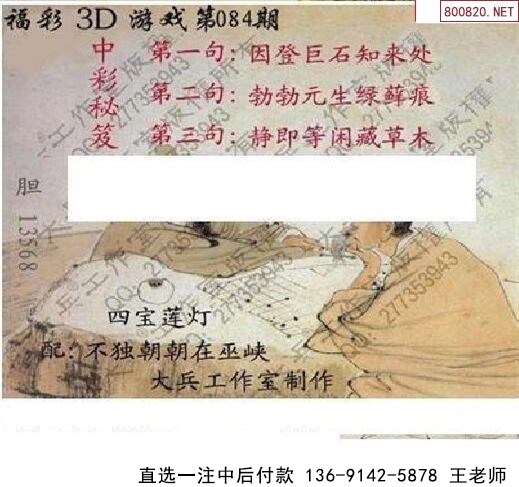 800820.NET
福彩 3D 游戏第084期
中彩秘笈
第一句：因登巨石知来处
第二句：勃勃元生绿藓痕
第三句：静即等闲藏草木
胆 13568
四宝莲灯
配：不独朝朝在巫峡
大兵工作室制作
直选一注中后付款 136-9142-5878 王老师